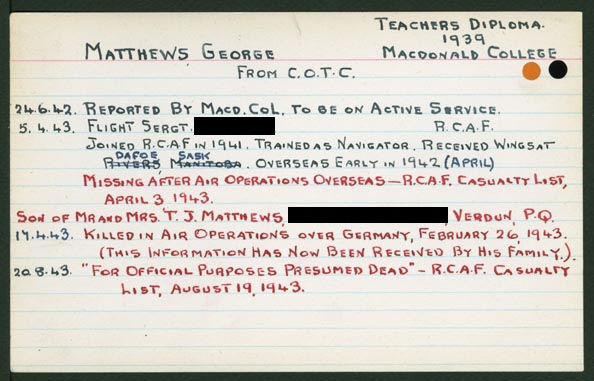 TEACHERS DIPLOMA.
1939
MATTHEWS, GEORGE MACDONALD COLLEGE
FROM C.O.T.C.
24.6.42. REPORTED BY MACD. COL. TO BE ON ACTIVE SERVICE.
5.4.43. FLIGHT SERGT. R.C.A.F.
JOINED R.C.A.F IN 1941. TRAINED AS NAVIGATOR. RECEIVED WINGS AT
DAFOE SASK
RIVERS MANITOBA. OVERSEAS EARLY IN 1942 (APRIL)
MISSING AFTER AIR OPERATIONS OVERSEAS — R.C.A.F. CASUALTY LIST,
APRIL 3, 1943.
SON OF MR AND MRS. T. J. MATTHEWS, VERDUN, P.Q.
17.4.43. KILLED IN AIR OPERATIONS OVER GERMANY, FEBRUARY 26, 1943.
(THIS INFORMATION HAS NOW BEEN RECEIVED BY HIS FAMILY.)
20.8.43. "FOR OFFICIAL PURPOSES PRESUMED DEAD" - R.C.A.F. CASUALTY
LIST, AUGUST 19, 1943.